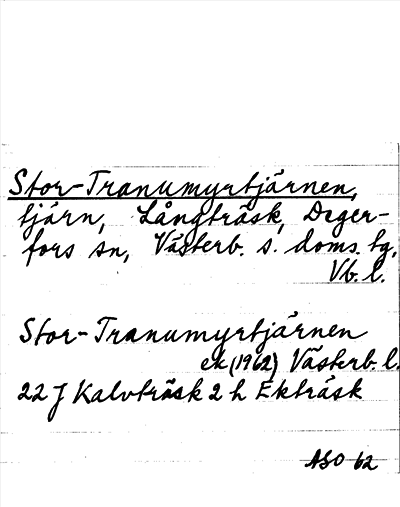 Stor-Tranumyrtjärnen,
tjärn, Långträsk, Deger-
fors sn, Västerb. s. doms. tg,
Vb. l.
Stor-Tranumyrtjärnen
ek (1962) Västerb. l.
22 J Kalvträsk 2 h Ekträsk
ASO 62